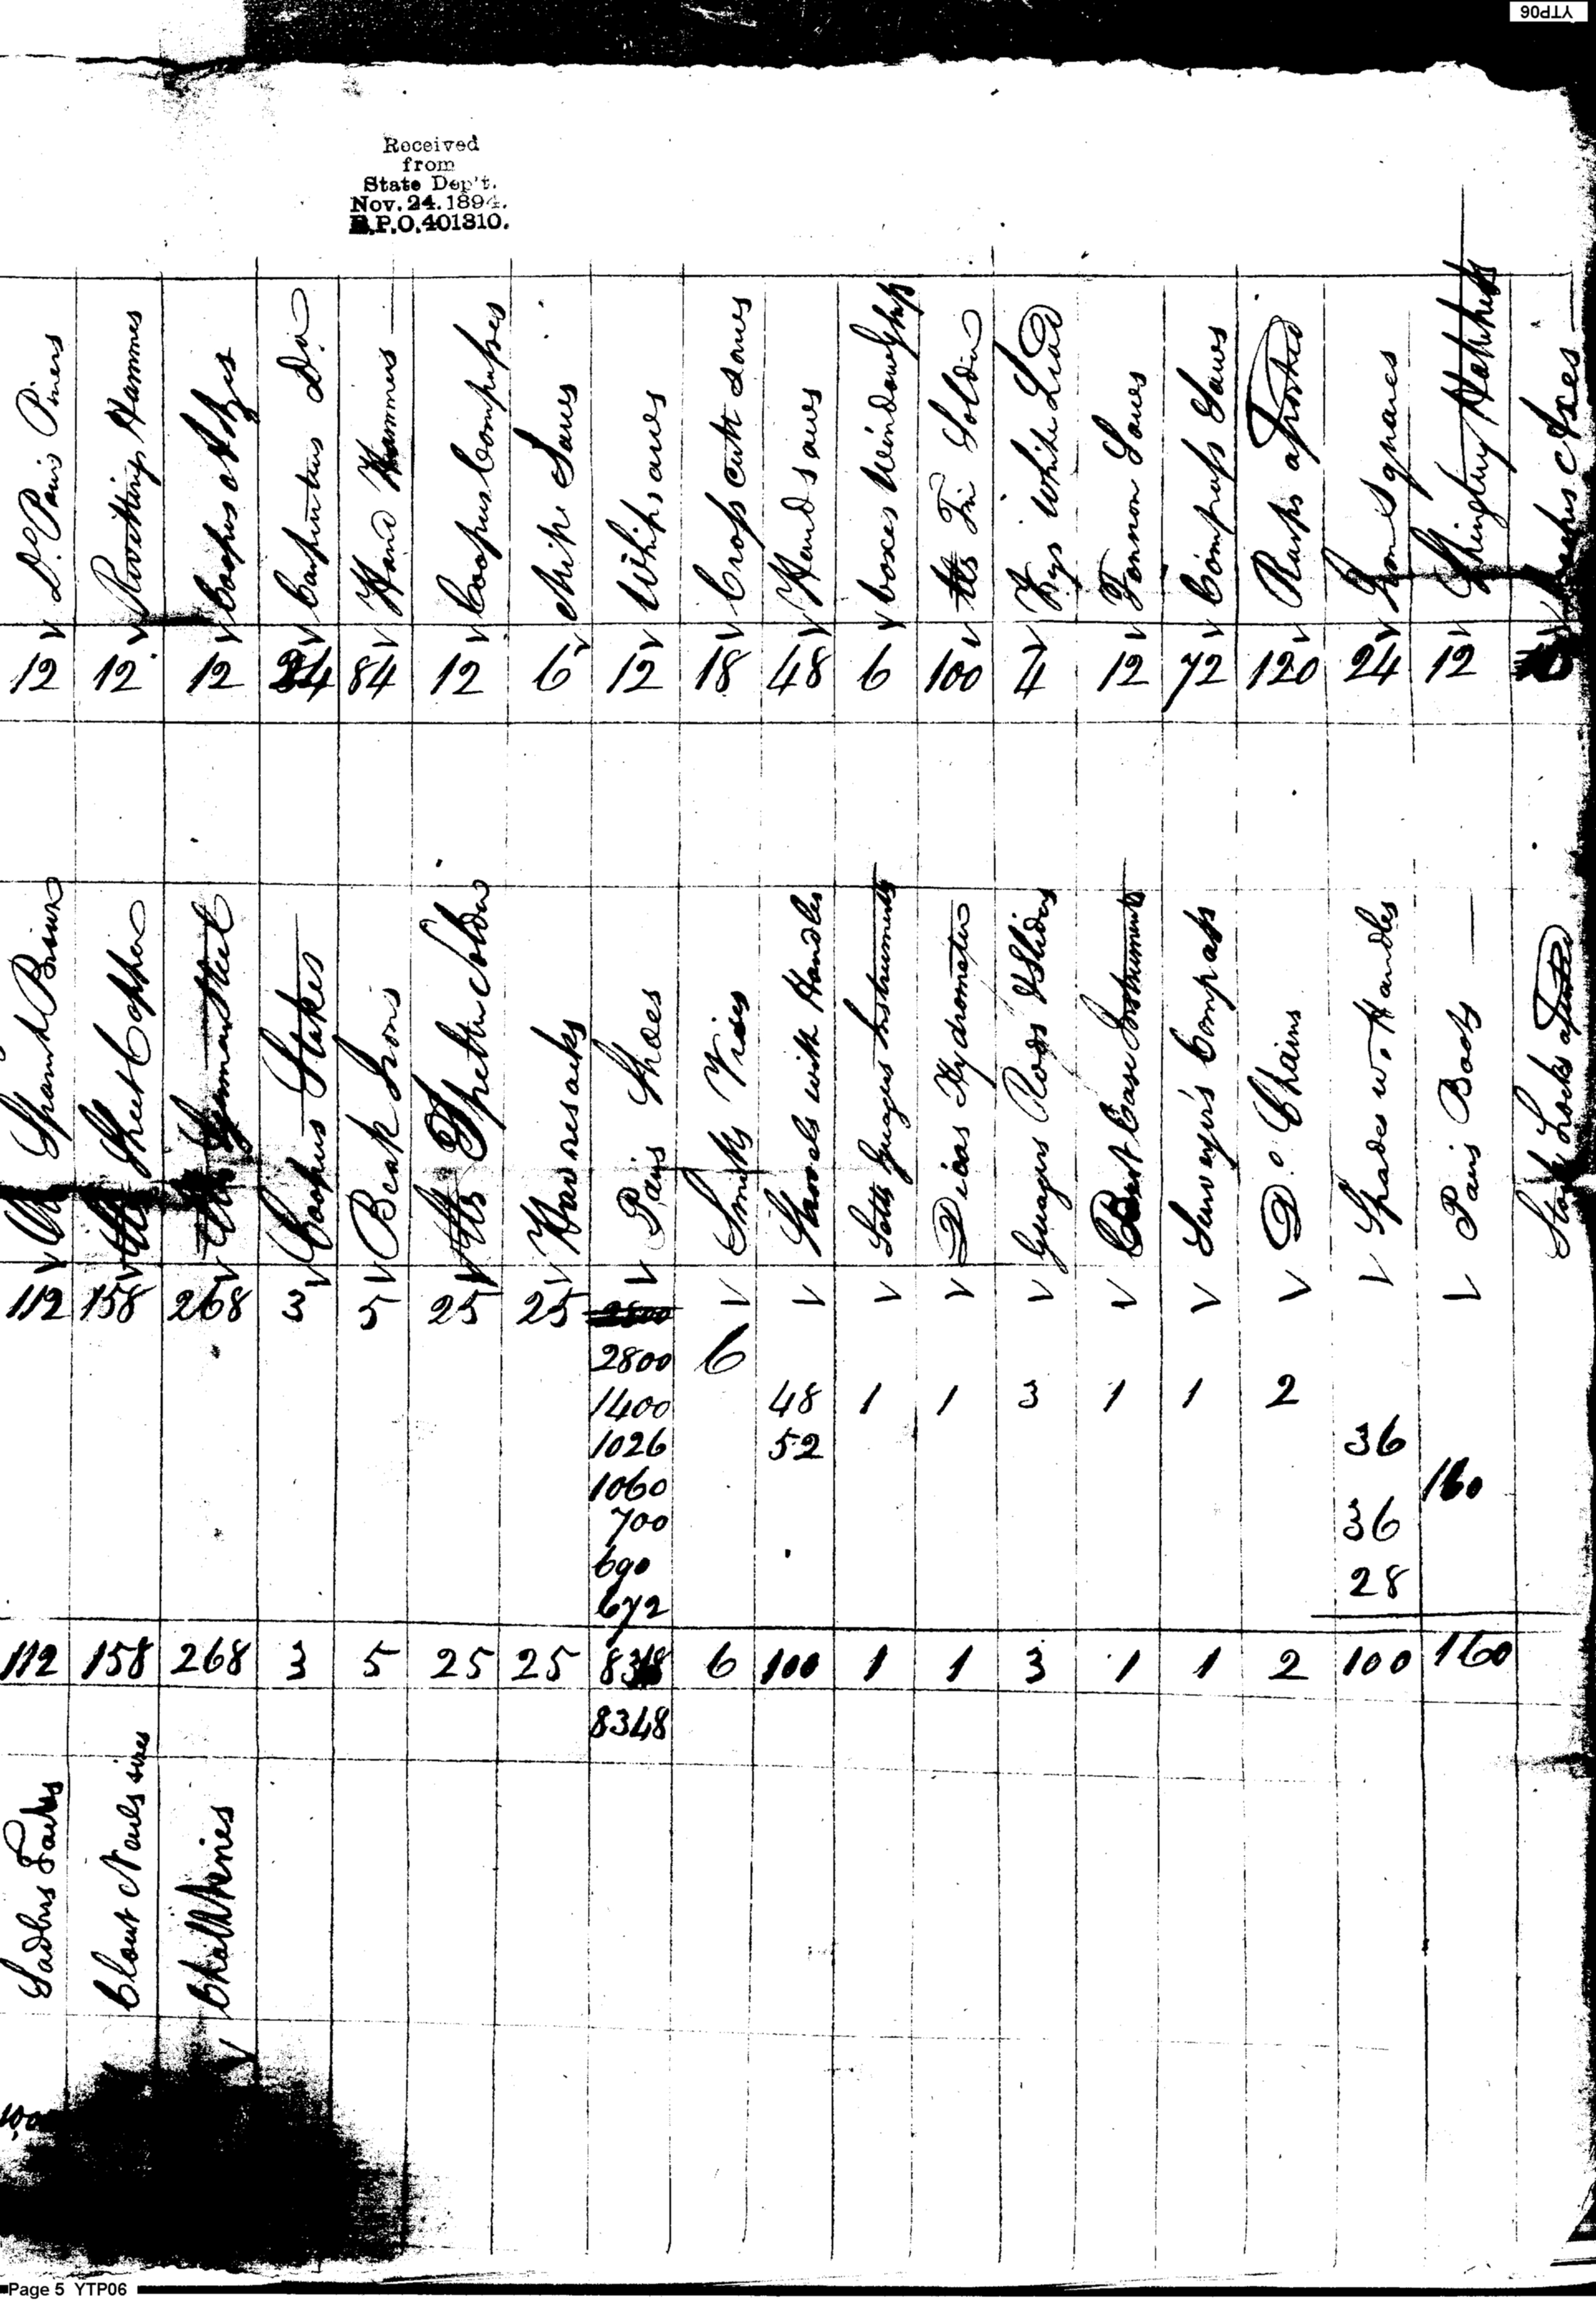 YTP06
Received
from
State Dep't.
Nov. 24. 1894.
R.P.O. 401310.
Do. Pairs Piners
Rivitting Hammes
Coopers Adzes
Carpenters Do.
Hand Hammers
Coopers Compasses
Saws
Whipsaws
Cross cutt Saws
Hand saws
boxes Window Glass
lbs Tin Solder
Kegs White Lead
Tennon Saws
Compass Saws
Rasps assorted
Iron Squares
Shingling Hatchets
Axes
12 12 12 24 84 12 6 12 18 48 6 100 4 12 72 120 24 12
Spanish Brown
lbs Sheet Copper
lbs German Steel
Coopers Stakes
Beak Irons
lbs Spelter Solder
Haversacks
Pairs Shoes
Smiths Vises
Shovels with Handles
Setts Guagers Instruments
Dicas Hydrometer
Guagers Rods & Sliding
Best Case Instruments
Surveyors Compass
Do. Chains
Spades w. Handles
Pairs Boots
Stock Locks assorted
112 158 268 3 5 25 25
2800 6
1400 48 1 1 3 1 1 2
1026 52 36
1060 160
700 36
690 28
672
112 158 268 3 5 25 25 8318 6 100 1 1 3 1 1 2 100 160
8348
Sadlers Tacks
Clout Nails sizes
Chalk Lines
Page 5 YTP06